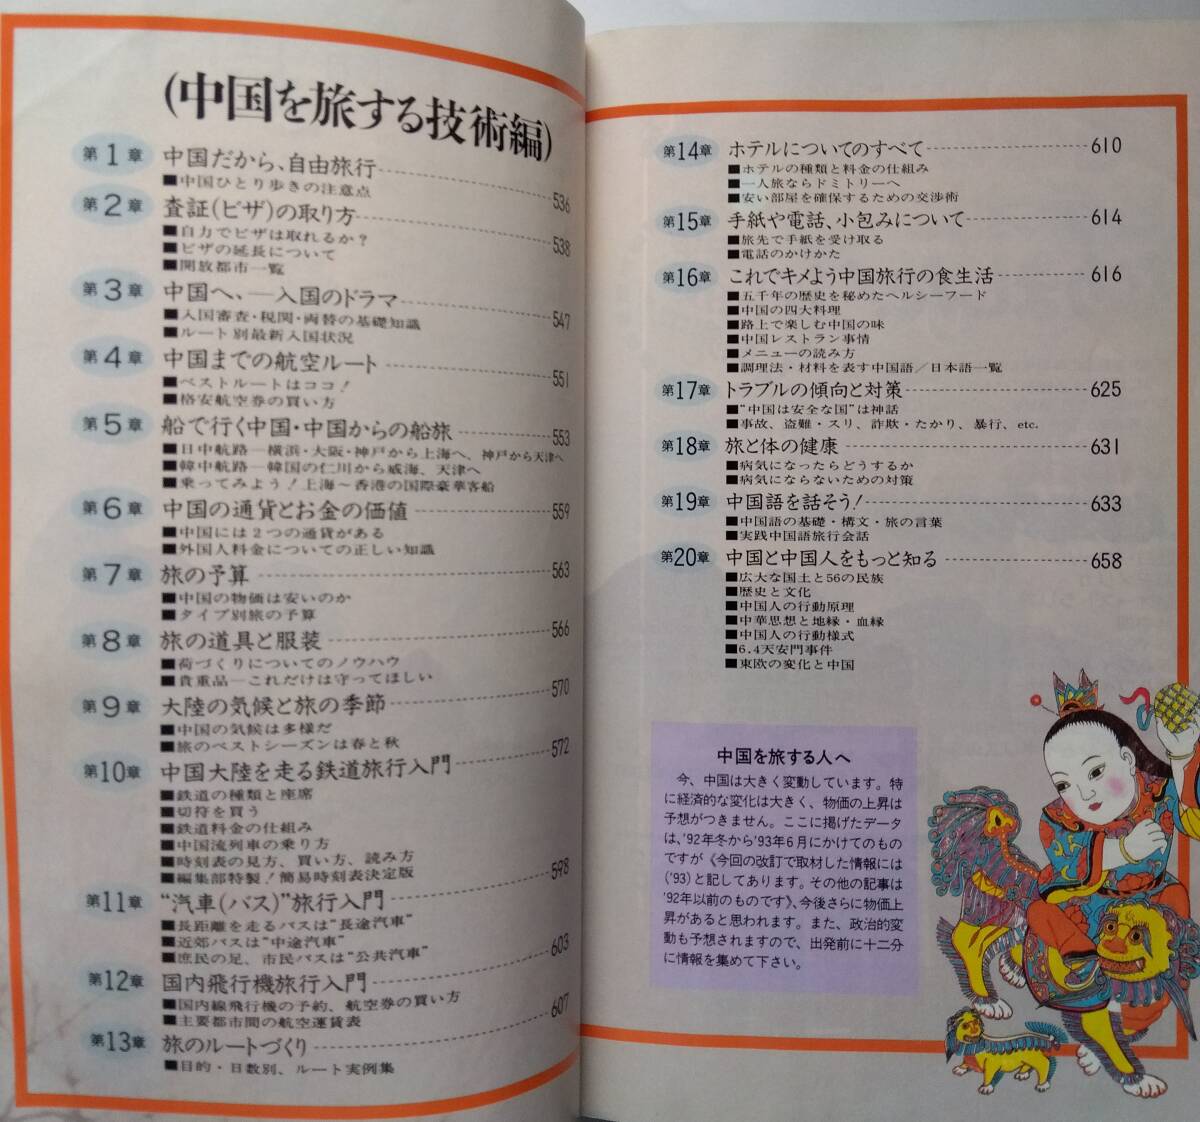 (中国を旅する技術編)
第1章 中国だから、自由旅行 536
■中国ひとり歩きの注意点
第2章 査証(ビザ)の取り方 538
■自力でビザは取れるか?
■ビザの延長について
■開放都市一覧
第3章 中国へ、―入国のドラマ 547
■入国審査・税関・両替の基礎知識
■ルート別最新入国状況
第4章 中国までの航空ルート 551
■ベストルートはココ!
■格安航空券の買い方
第5章 船で行く中国・中国からの船旅 553
■日中航路―横浜・大阪・神戸から上海へ、神戸から天津へ
■韓中航路―韓国の仁川から威海、天津へ
■乗ってみよう!上海～香港の国際豪華客船
第6章 中国の通貨とお金の価値 559
■中国には2つの通貨がある
■外国人料金についての正しい知識
第7章 旅の予算 563
■中国の物価は安いのか
■タイプ別旅の予算
第8章 旅の道具と服装 566
■荷づくりについてのノウハウ
■貴重品―これだけは守ってほしい
第9章 大陸の気候と旅の季節 570
■中国の気候は多様だ
■旅のベストシーズンは春と秋
第10章 中国大陸を走る鉄道旅行入門 572
■鉄道の種類と座席
■切符を買う
■鉄道料金の仕組み
■中国流列車の乗り方
■時刻表の見方、買い方、読み方
■編集部特製!簡易時刻表決定版
第11章 “汽車(バス)”旅行入門 598
■長距離を走るバスは“長途汽車”
■近郊バスは“中途汽車”
■庶民の足、市民バスは“公共汽車”
第12章 国内飛行機旅行入門 603
■国内線飛行機の予約、航空券の買い方
■主要都市間の航空運賃表
第13章 旅のルートづくり 607
■目的・日数別、ルート実例集
第14章 ホテルについてのすべて 610
■ホテルの種類と料金の仕組み
■一人旅ならドミトリーへ
■安い部屋を確保するための交渉術
第15章 手紙や電話、小包みについて 614
■旅先で手紙を受け取る
■電話のかけかた
第16章 これでキメよう中国旅行の食生活 616
■五千年の歴史を秘めたヘルシーフード
■中国の四大料理
■路上で楽しむ中国の味
■中国レストラン事情
■メニューの読み方
■調理法・材料を表す中国語/日本語一覧
第17章 トラブルの傾向と対策 625
■“中国は安全な国”は神話
■事故、盗難・スリ、詐欺・たかり、暴行、etc.
第18章 旅と体の健康 631
■病気になったらどうするか
■病気にならないための対策
第19章 中国語を話そう! 633
■中国語の基礎・構文・旅の言葉
■実践中国語旅行会話
第20章 中国と中国人をもっと知る 658
■広大な国土と56の民族
■歴史と文化
■中国人の行動原理
■中華思想と地縁・血縁
■中国人の行動様式
■6.4天安門事件
■東欧の変化と中国
中国を旅する人へ
今、中国は大きく変動しています。特
に経済的な変化は大きく、物価の上昇は
予想がつきません。ここに掲げたデータ
は、'92年冬から'93年6月にかけてのもの
ですが《今回の改訂で取材した情報には
('93)と記してあります。その他の記事は
'92年以前のものです》、今後さらに物価上
昇があると思われます。また、政治的変
動も予想されますので、出発前に十二分
に情報を集めて下さい。